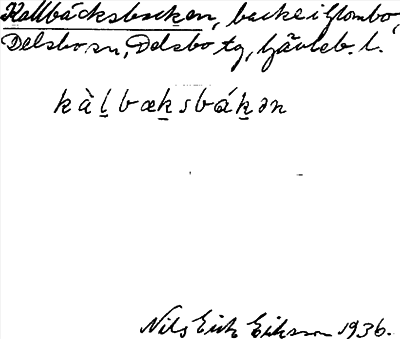 Kallbäcksbacken, backe i Glombo,
Delsbo sn, Delsbo tg, Gävleb. l.
kàḷbæḵsbáḵən
Nils Erik Eriksson 1936.